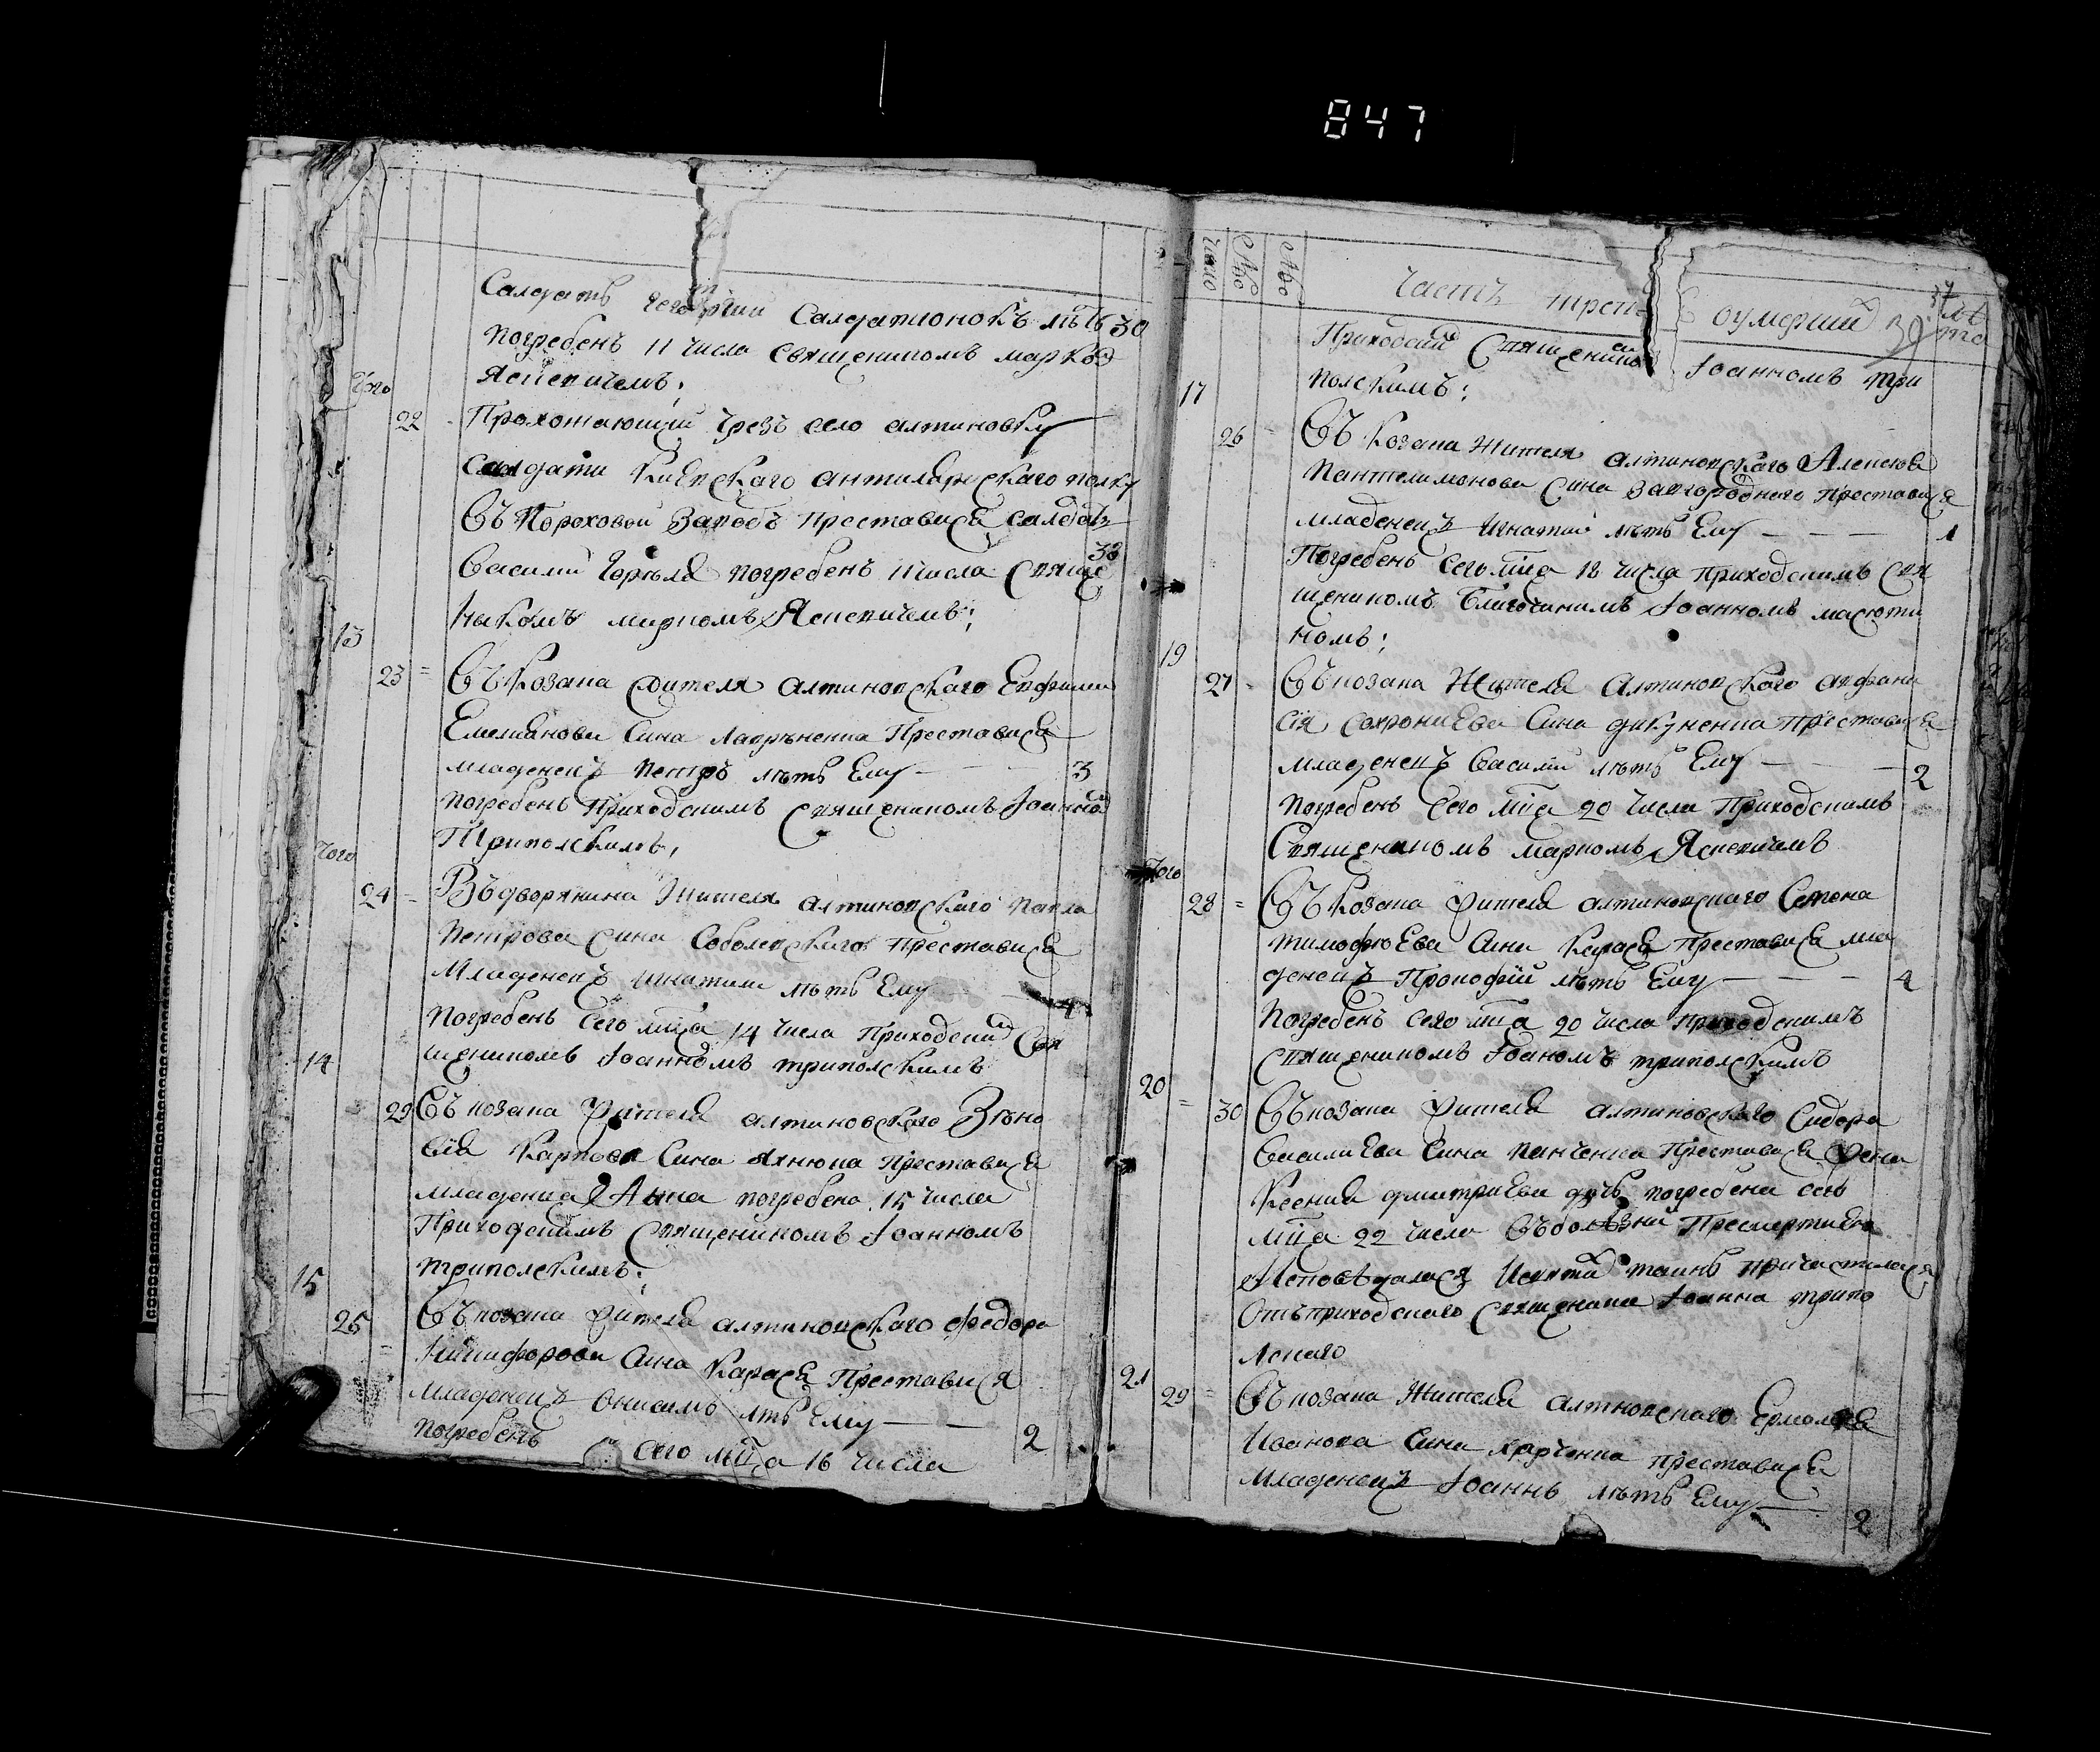 847
Салдатъ Салдатионокъ лѣтъ 30
погребенъ 11 числа священикомъ марко
Ясневичемъ;
того
22 Прохотающии чрезъ село алтиновку
салдати Киевского антилерского полку
Въ Пороховой Заводъ преставися салдатъ
Василий погребенъ 11 числа свяще 38
никомъ маркомъ Ясневичемъ;
13
23 = Въ Козака жителя алтиновского Евфимии
Емелианови сина лавръненка Преставися
младенецъ петръ лѣтъ Ему — 3
погребенъ приходскимъ священикомъ Іоанно
Триполскимъ,
того
24 = Въ дворянина жителя алтиновского павла
петрова сина Соболевского преставися
Младенецъ игнатии лѣтъ Ему 4
погребенъ сего мца 14 числа приходски свя
щеникомъ Іоанномъ триполскимъ
14
29 Въ козака жителя алтиновского Зѣно
вія Карпова сина яхнюка преставися
младенца Анна погребена 15 числа
Приходскимъ священикомъ Іоанномъ
триполскимъ:
15
25 = Въ козака жителя алтиновского федора
Никифорови сина карася Преставися
младенецъ Онисимъ лѣтъ ему — — 2
погребенъ сего мца 16 числа
число
Часть трет оумерши 39 лѣта
Приходски священико Іоанномъ три
полскимъ;
17
26 = Въ Козака жителя алтиновского Алексѣя
Пантелимонови сина Завгородного преставися
младенецъ игнатий лѣтъ Ему — — — 1
Погребенъ сего мца 18 числа приходскимъ свя
щеникомъ благочинимъ Іоанномъ масюти
номъ;
19
27 Въ козака Жителя Алтиновского анфана
сія софрониева сина дикуненка преставися
младенецъ Василий лѣтъ Ему — — 2
погребенъ Сего мца 20 числа Приходскимъ
Священикомъ маркомъ Ясневичемъ
того
28 = Въ Козака жителя алтиновского Семена
тимофиева сина Карася преставися мла
денецъ Прокофий лѣтъ Ему — — — 4
Погребенъ сего мца 20 числа приходскимъ
священикомъ Іоаномъ триполскимъ
20
= 30 Въ козака жителя алтиновского Сидора
Василиева сина панченка преставися жена
Ксения дмитриева дчь погребена сего
мца 22 числа въ болѣзни Пресмертиего
Исповѣдалася Исвята таинъ причастилася
Отъ приходского священика Іоанна трипо
лского
21
29 = Въ козака Жителя алтновского Ермолая
Иванова сина харченка преставися
Младенецъ Іоаннъ лѣтъ Ему — 2